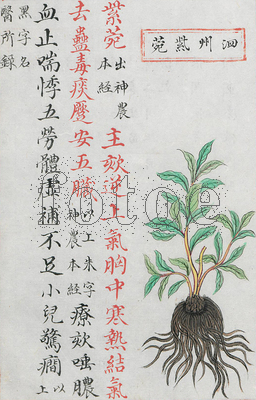 泗州紫菀
紫菀 出神農本經 主欬逆上氣胸中寒熱結氣
去蠱毒痰躄安五臟 以上朱字神農本經 療欬唾膿
血止喘悸五勞體虛補不足小兒驚癇 以上
黑字名醫所錄